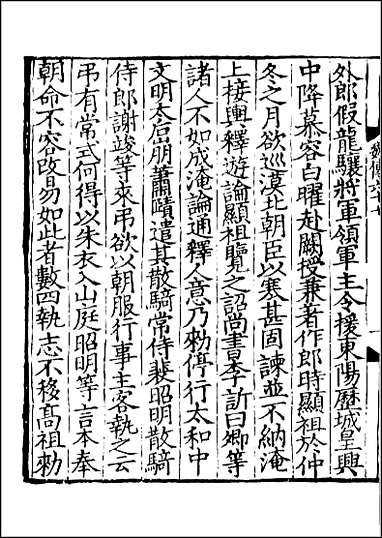 外郎假龍驤將軍領軍主令援東陽歷城皇興
中降慕容白曜赴闕授兼著作郎時顯祖於仲
冬之月欲巡漠北朝臣以寒甚固諫並不納淹
上接輿釋遊論顯祖覽之詔尚書李訢曰卿等
諸人不如成淹論通釋人意乃勑停行太和中
文明太后崩蕭賾遣其散騎常侍裴昭明散騎
侍郎謝竣等來弔欲以朝服行事主客執之云
弔有常式何得以朱衣入山庭昭明等言本奉
朝命不容改易如此者數四執志不移高祖勑